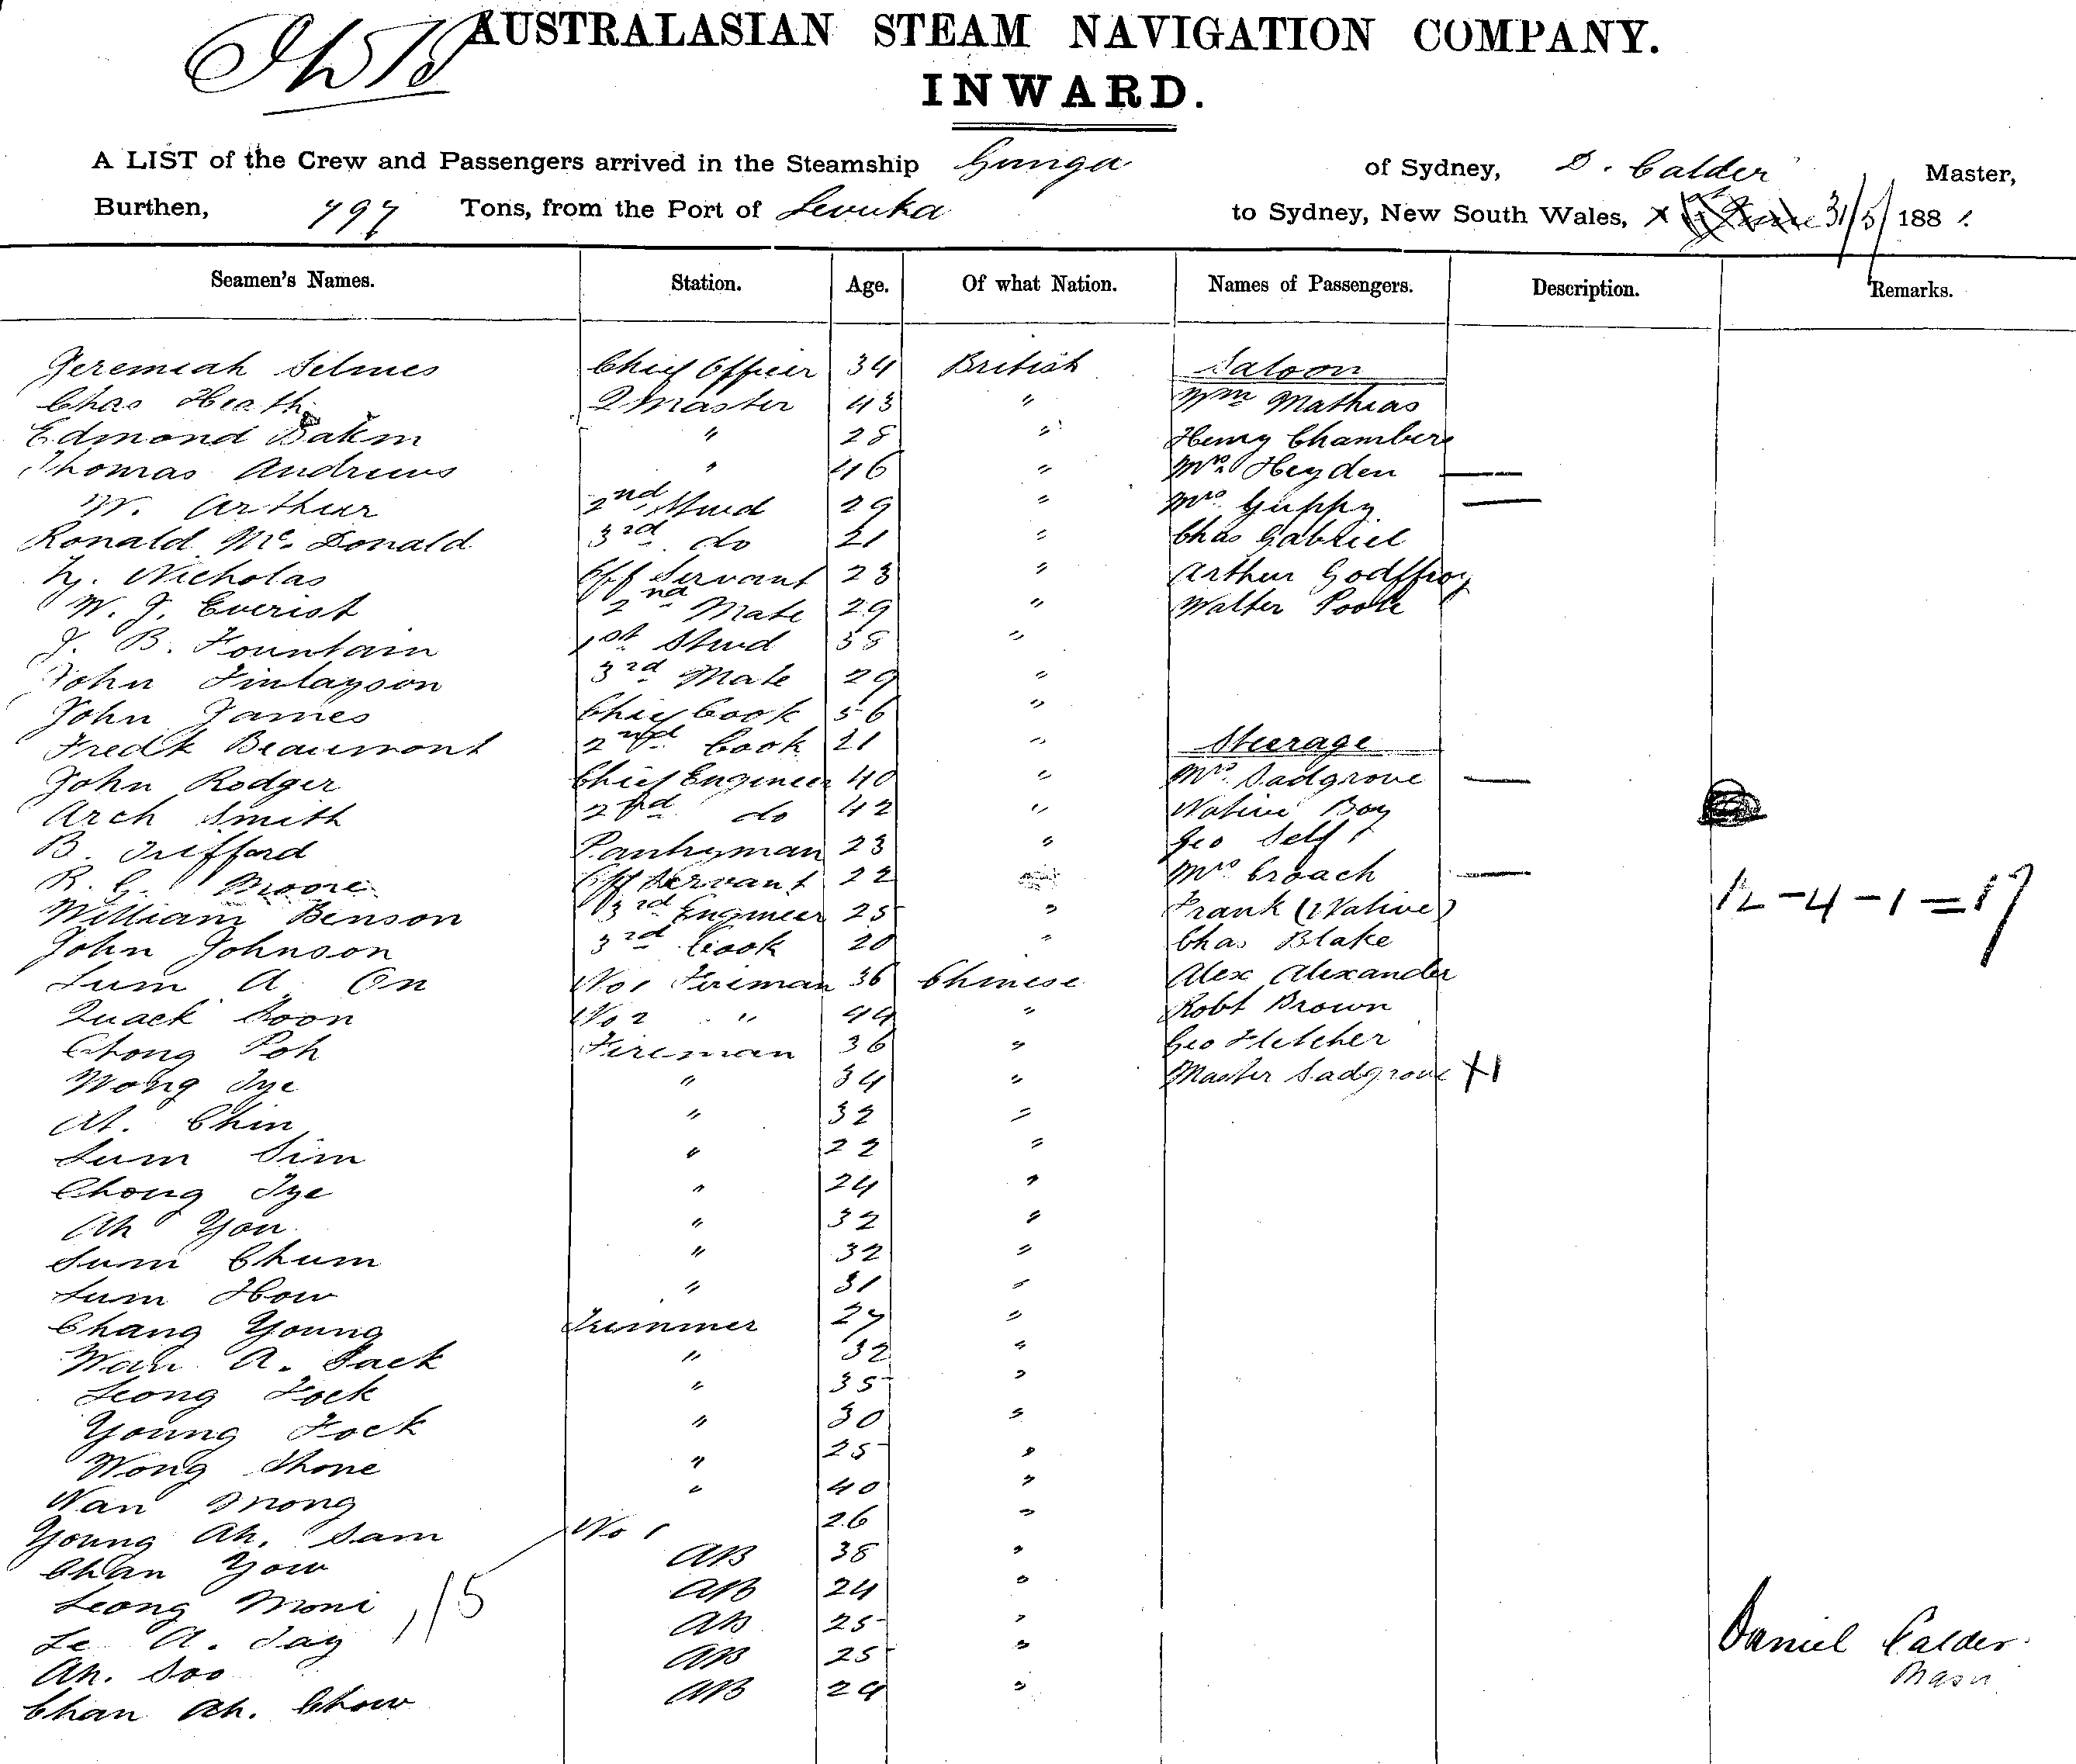 AUSTRALASIAN STEAM NAVIGATION COMPANY.
INWARD.
A LIST of the Crew and Passengers arrived in the Steamship Gunga of Sydney, D. Calder Master,
Burthen, 797 Tons, from the Port of Levuka to Sydney, New South Wales, x 31/5/ 188
Seamen's Names. Station. Age. Of what Nation. Names of Passengers. Description. Remarks.
Jeremiah Selmes Chief Officer 34 British Saloon
Chas Heath Q Master 43 " Wm Mathias
Edmond " 28 " Henry Chambers
Thomas Andrews " 46 " Mrs Heyden —
W. Arthur 2nd Stwd 29 " Mrs Guppy —
Ronald Mc. Donald 3rd do 21 " Chas Gabriel
Hy. Nicholas Off Servant 23 " Arthur Godffroy
W. J. Everist 2nd Mate 29 " Walter Poole
J. B. Fountain 1st Stwd 38 "
John Finlayson 3rd Mate 29 "
John James Chief Cook 56 "
Fredk Beaumont 2nd Cook 21 " Steerage
John Rodger Chief Engineer 40 " Mrs Sadgrove —
Arch Smith 2nd do 42 " Native Boy
B. Trifford Pantryman 23 " Geo Self
R. G. Moore Off Servant 22 " Mrs Croach —
William Benson 3rd Engineer 25 " Frank (Native) 12 - 4 - 1 = 17
John Johnson 3rd Cook 20 " Chas Blake
Sum A On No 1 Fireman 36 Chinese Alex Alexander
Quack Soon No 2 " 44 " Robt Brown
Chong Poh Fireman 36 " Geo Fletcher
Wong Tye " 34 " Master Sadgrove X1
At. Chin " 32 "
Sum Sim " 22 "
Chong Tye " 24 "
Ah You " 32 "
Sum Chum " 32 "
Sum How " 31 "
Chang Young Trimmer 27 "
Wan A. Sack " 32 "
Leong Fock " 35 "
Young Fock " 30 "
Wong Shone " 25 "
Wan Mong " 40 "
Young Ah. Sam No 1 26 "
Chan Yow AB 38 "
Leong Moni AB 24 "
Le A. Jag AB 25 "
Ah. Soo AB 25 "
Chan Ah. Chow AB 24 "
Daniel Calder